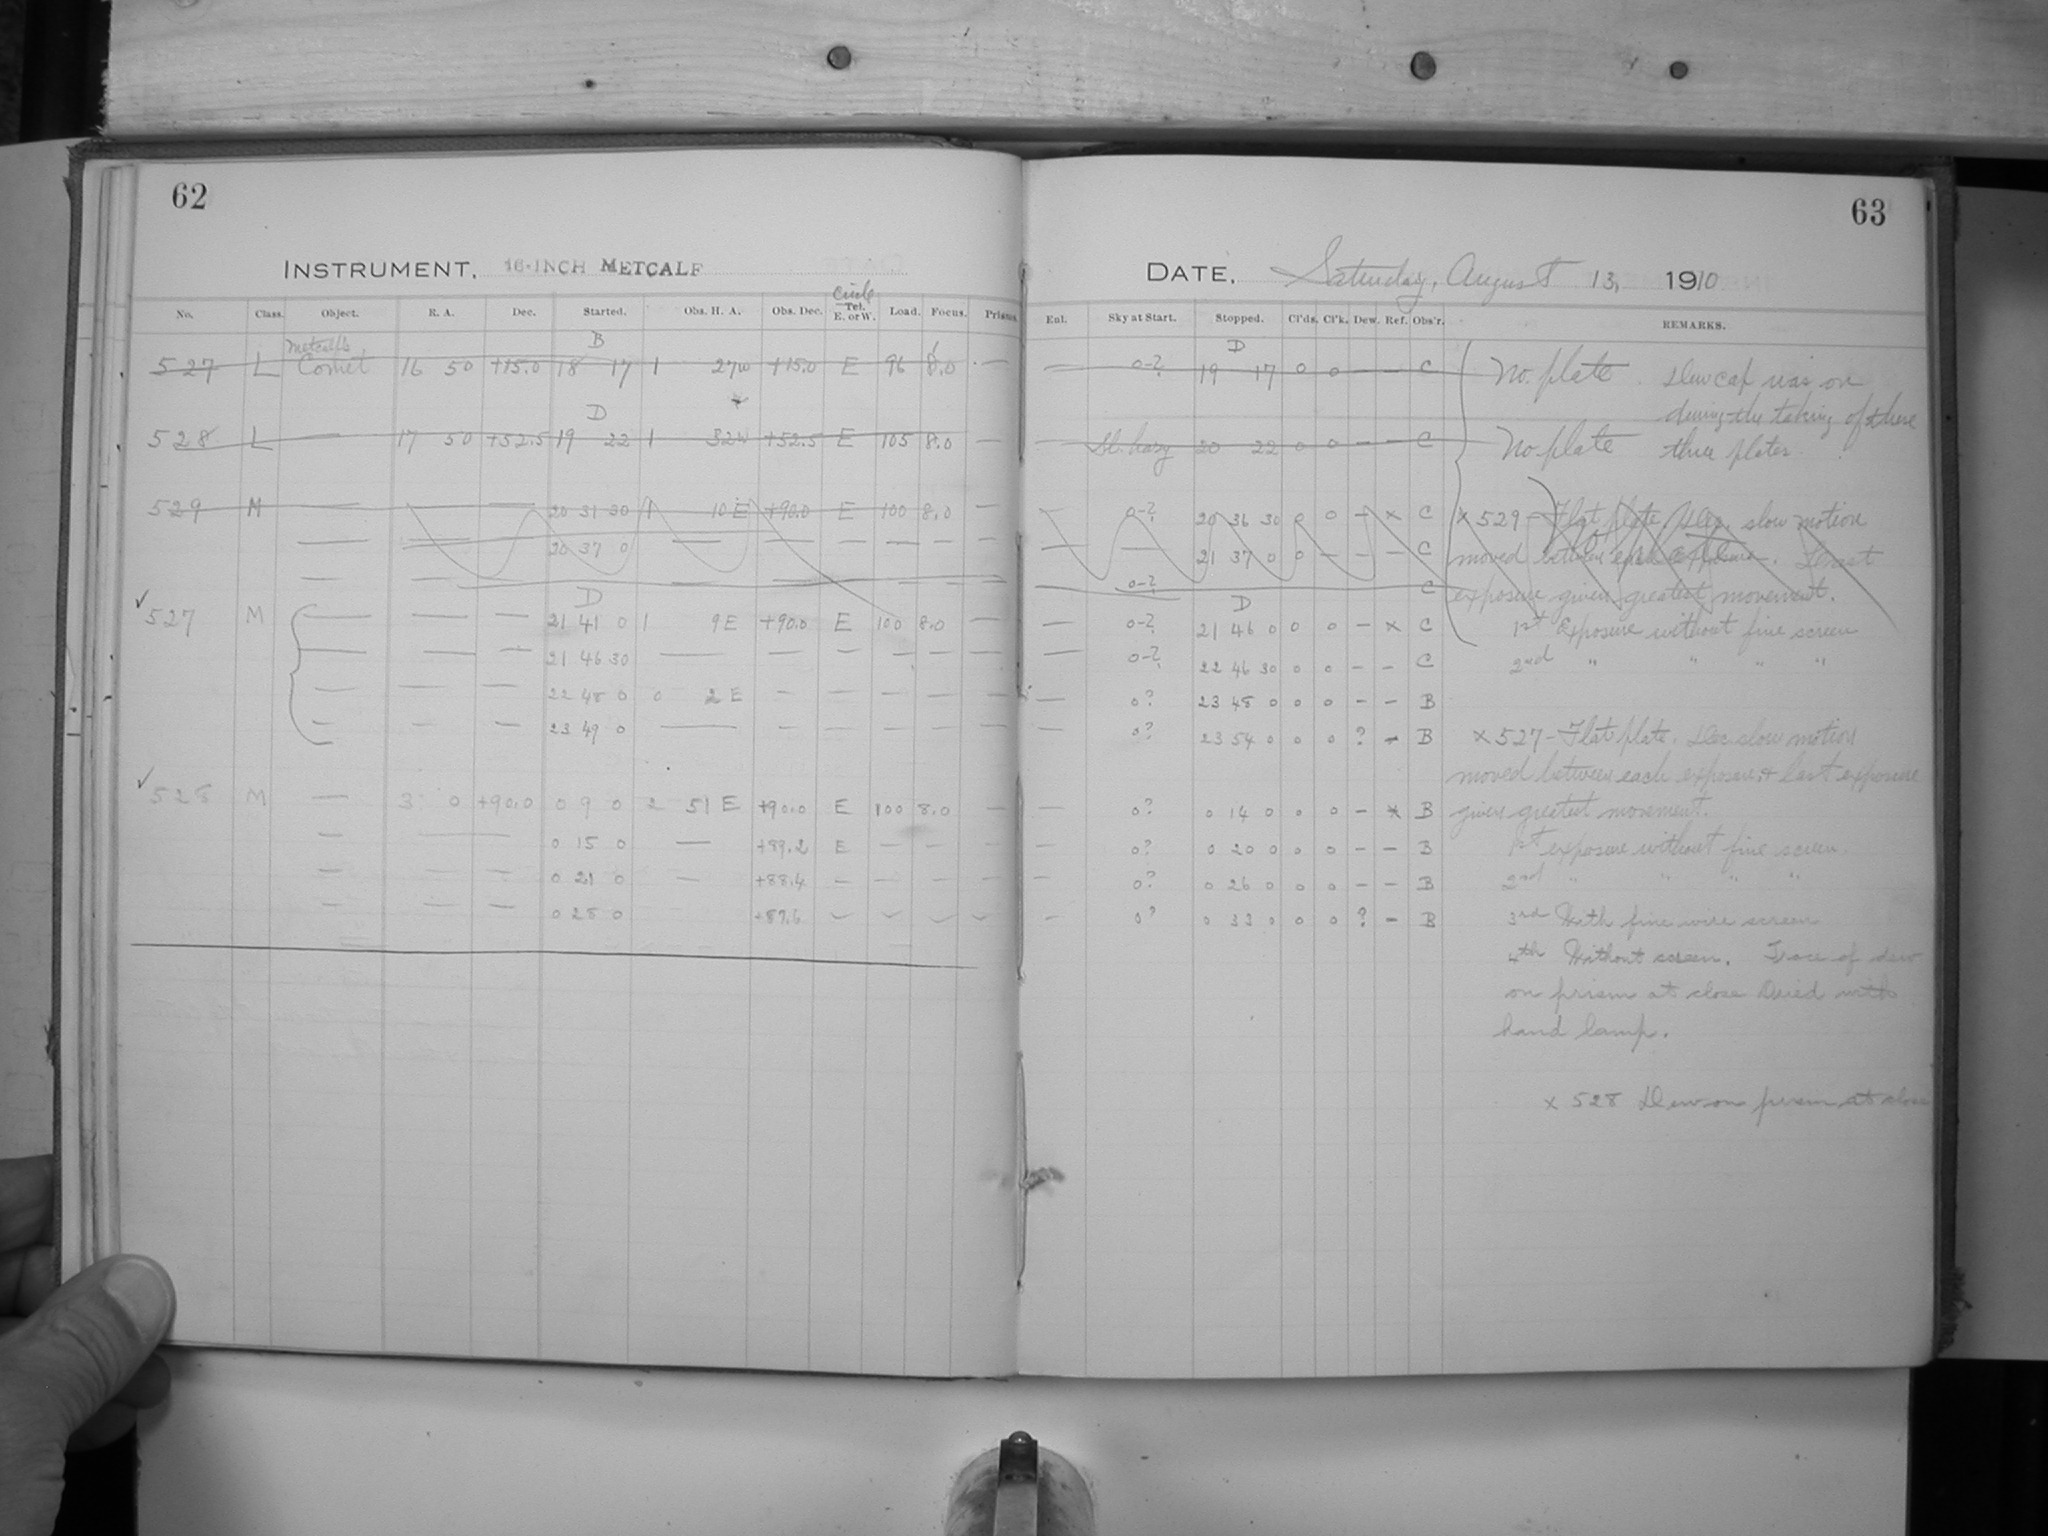 62
INSTRUMENT. 16-INCH METCALF
Circle
No. Class. Object. R. A. Dec. Started. Obs. H. A. Obs. Dec. Tel. E. or W. Load. Focus. Prisms.
Metcalf's B
527 L Comet 16 50 +15.0 18 17 1 27w +15.0 E 96 8.0 —
D
528 L — 17 50 +52.5 19 22 1 32w +52.5 E 105 8.0 —
529 M — — — 20 31 30 1 10 E +90.0 E 100 8.0 —
— — — 20 37 0 — — — — — —
D
✓527 M — — — 21 41 0 1 9 E +90.0 E 100 8.0 —
— — — 21 46 30 — — — — — —
— — — 22 48 0 0 2 E — — — — —
— — — 23 49 0 — — — — — —
✓528 M — 3 0 +90.0 0 9 0 2 51 E +90.0 E 100 8.0 —
— — 0 15 0 — +89.2 E — — —
— — — 0 21 0 — +88.4 — — — —
— — — 0 28 0 +87.6
63
DATE. Saturday, August 13, 1910
Ent. Sky at Start. Stopped. Cl'ds. Cl'k. Dew. Ref. Obs'r. REMARKS.
D
— 0-? 19 17 0 0 — — C No plate. Dew cap was on
during the taking of these
Sl. hazy 20 22 0 0 — — C No plate three plates.
— 0-? 20 36 30 0 0 — x C x 529 - Flat plate. Dec. slow motion
— — 21 37 0 0 — — — C moved between each exposure. Last
0-? C exposure given greatest movement.
D
— 0-? 21 46 0 0 0 — x C 1st Exposure without fine screen
— 0-? 22 46 30 0 0 — — C 2nd " " " "
— 0? 23 48 0 0 0 — — B
— 0? 23 54 0 0 0 ? — B x 527 - Flat plate. Dec slow motion
moved between each exposure & last exposure
— 0? 0 14 0 0 0 — x B given greatest movement.
— 0? 0 20 0 0 0 — — B 1st exposure without fine screen.
— 0? 0 26 0 0 0 — — B 2nd " " " "
— 0? 0 33 0 0 0 ? — B 3rd With fine wire screen
4th Without screen. Trace of dew
on prism at close Dried with
hand lamp.
x 528 Dew on prism at close